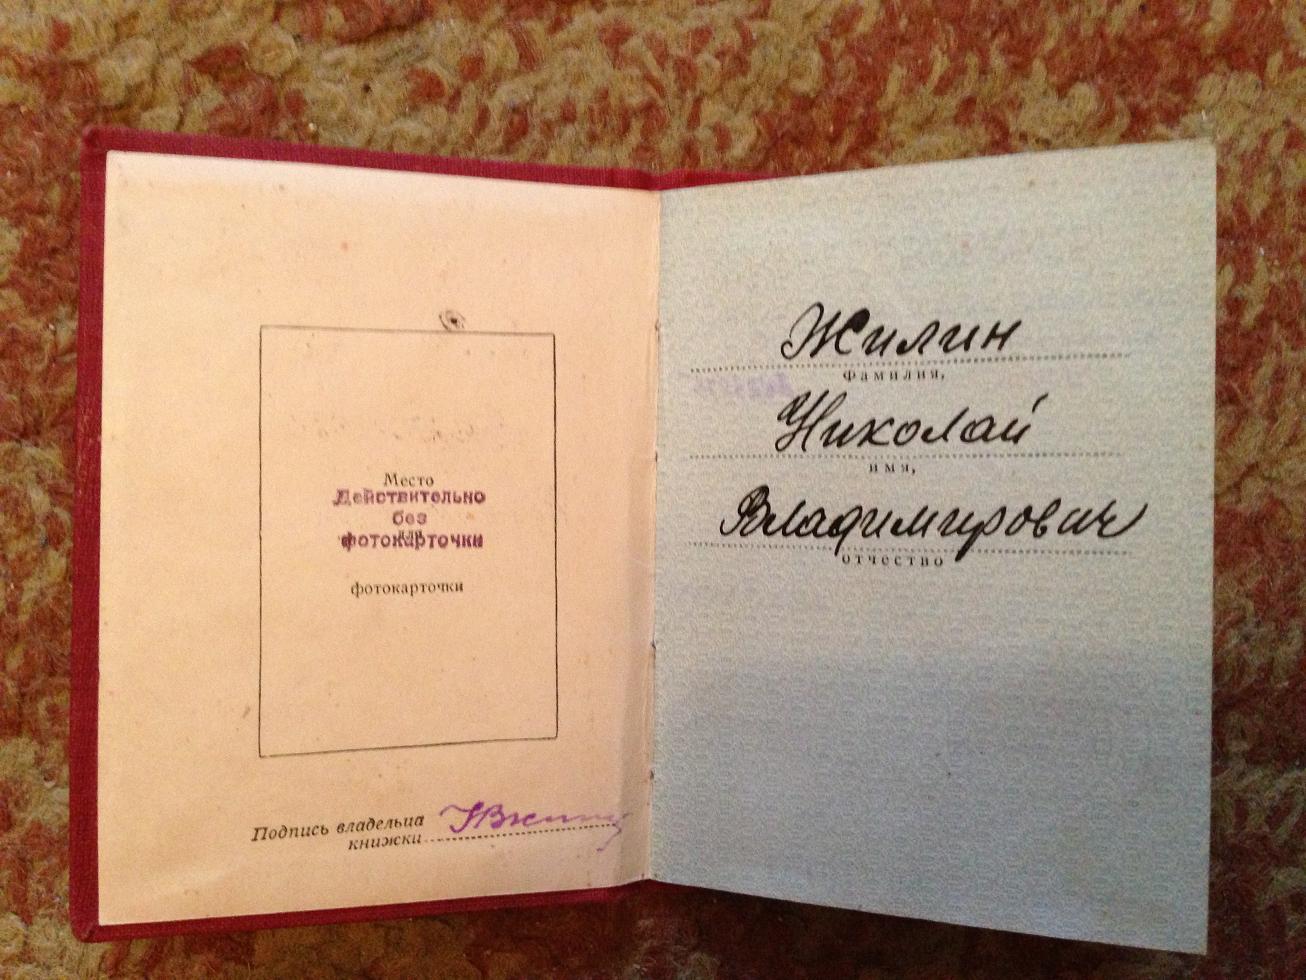 Место
Действительно
без
или
фотокарточки
фотокарточки
Подпись владельца
книжки
Жилин
фамилия,
Николай
имя,
Владимирович
отчество